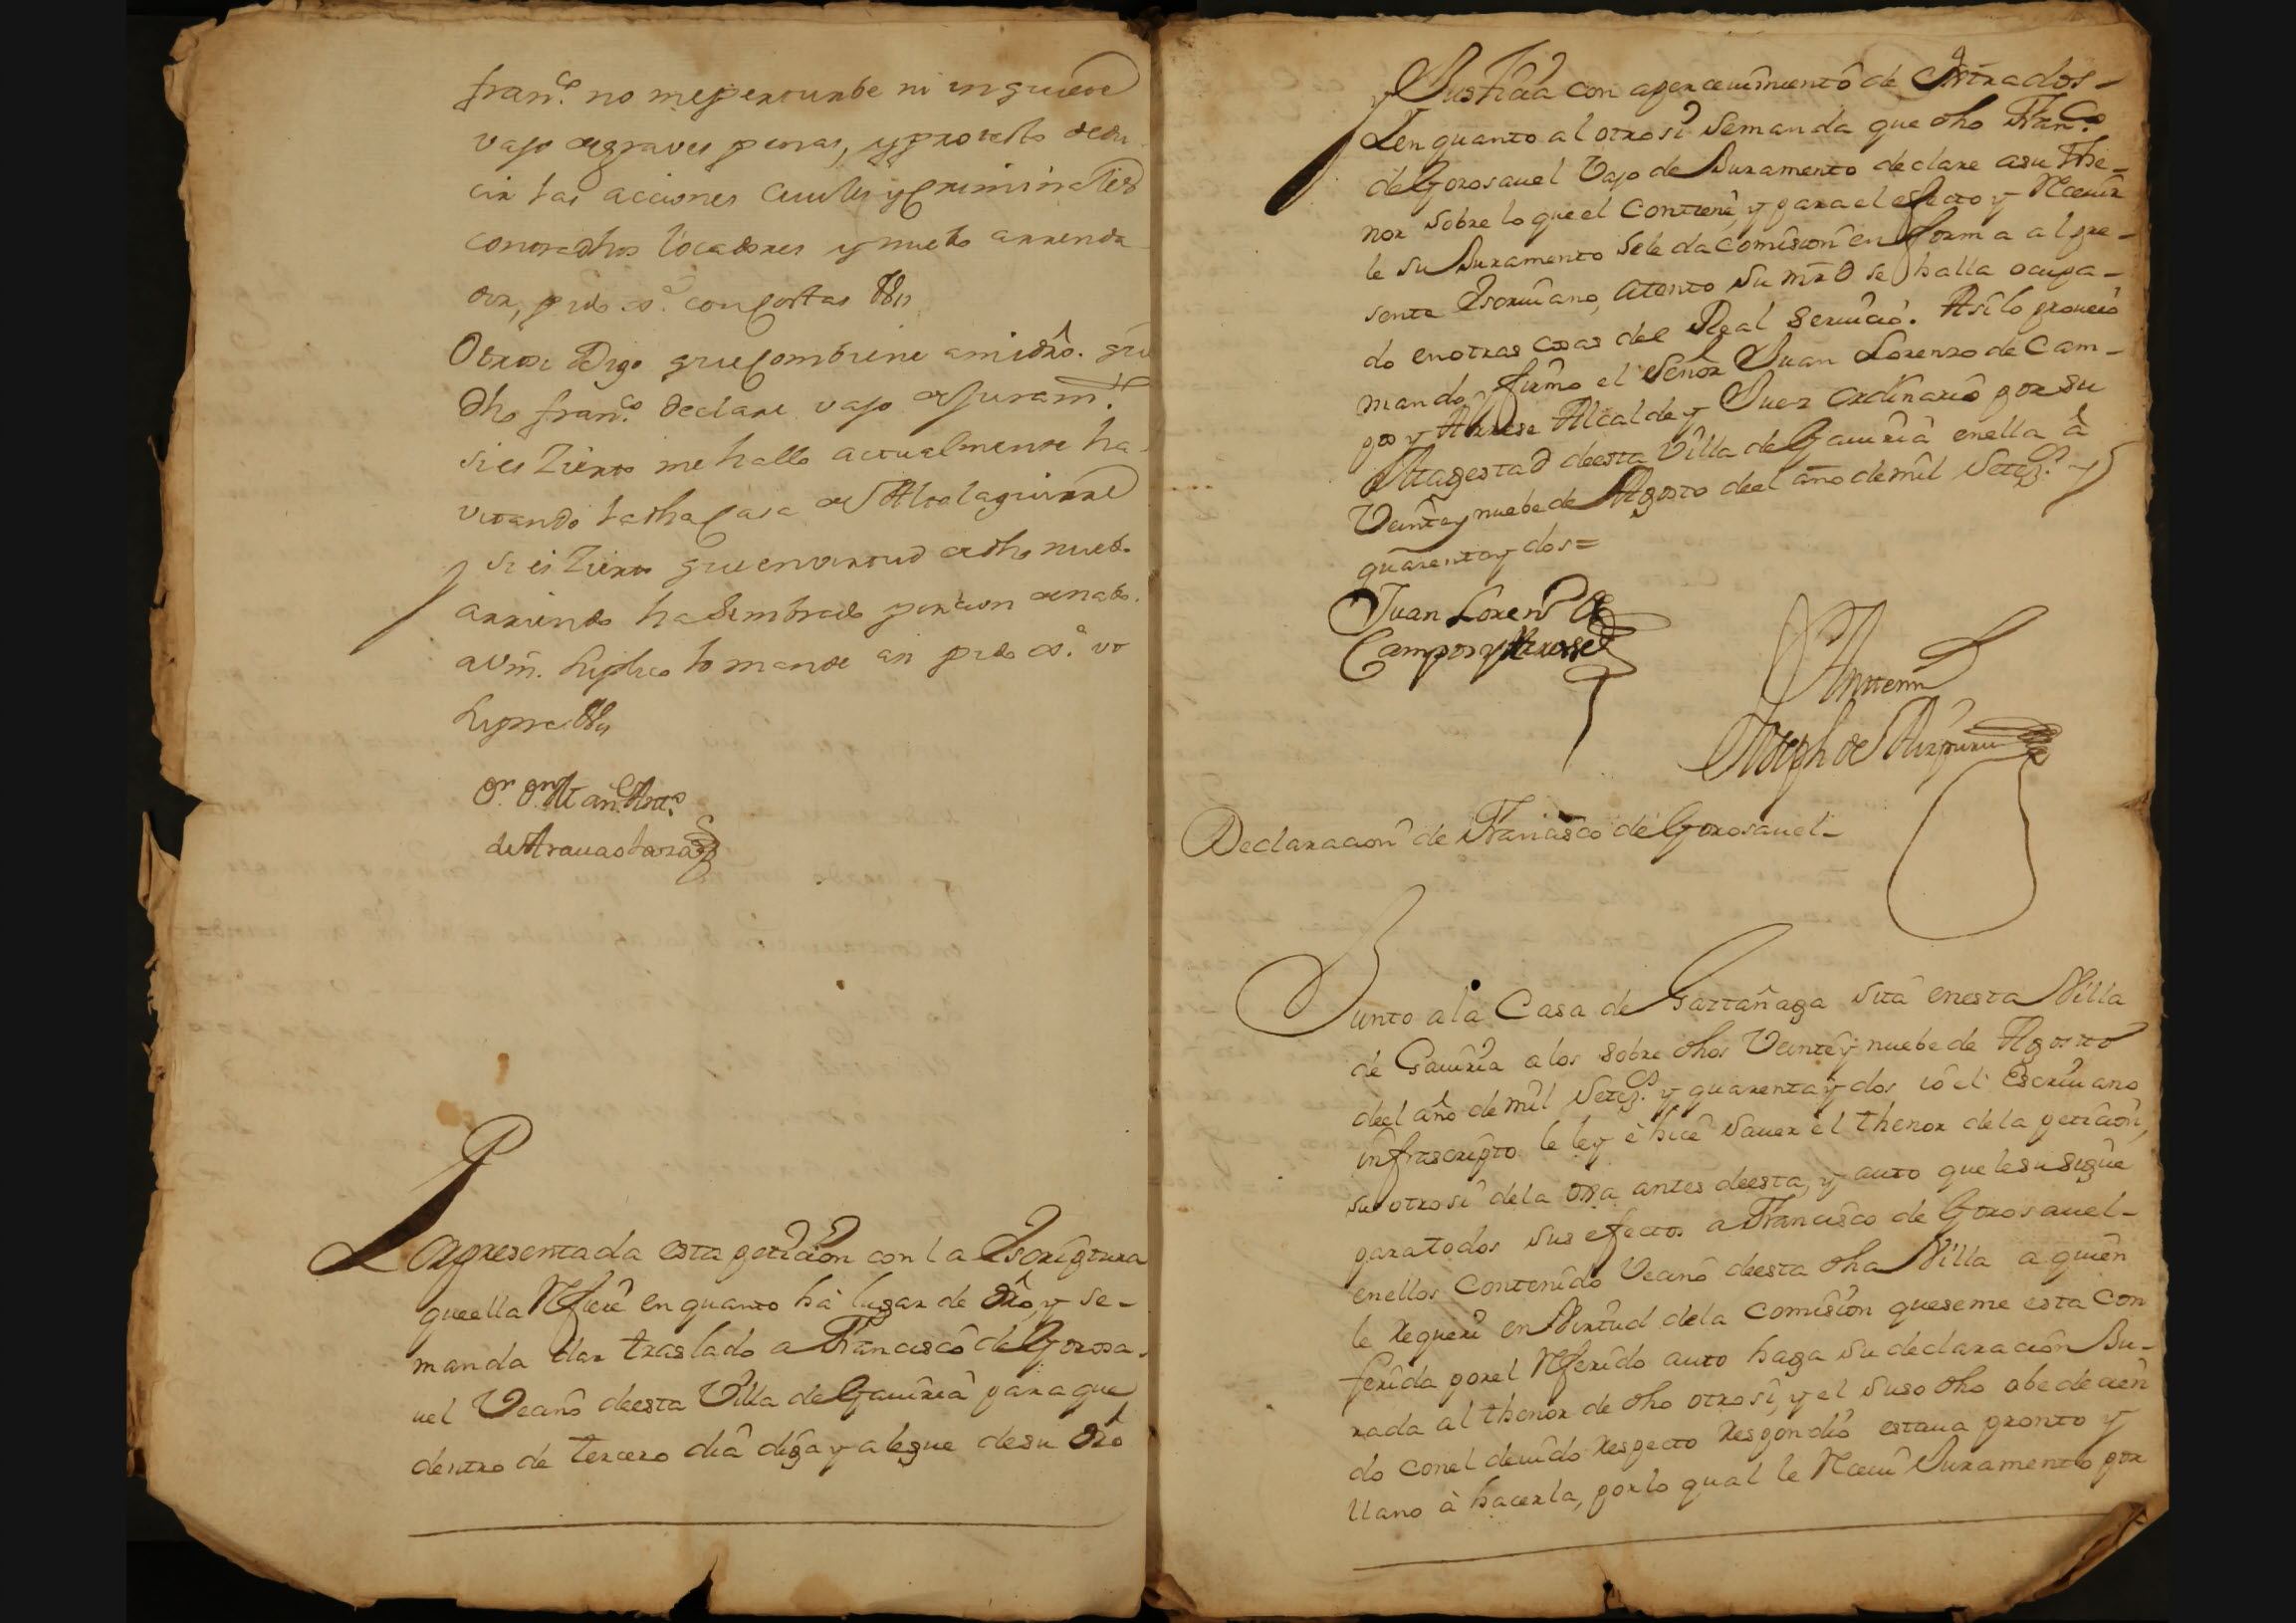 fran.co no me perturbe ni inquiete
vajo de graves penas, y protesto dedu
cir las acciones Ciuiles y Criminales
contra dhos locadores y nuebo arrenda
dor, pido Jus.a con Costas &.a
Otrosi Digo que Combiene a mi dro. que
dho fran.co declare vajo de Juram.to
si es Zierto me hallo actualmente ha
vitando la dha Casa de Alcalaguirre
y si es Zierto que en virtud de dho nuebo
arriendo ha Sembrado porcion de nabo.
a Vm. Suplico lo mande asi pido Jus.a vt
Supra &.a
D.r D.n Man.l Ant.o
de
Por presentada esta peticion con la Escriptura
que ella Refiere en quanto hà lugar de dro, y se-
manda dar traslado a Francisco de Gorosa-
uel Vecino de esta Villa de Gauiria para que
dentro de tercero dia diga y alegue de su dro
y Justicia con aperceuimiento de Estrados-
Y en quanto al otrosi Semanda que dho Fran.co
de Gorosauel Vajo de Juramento declare a su The-
nor sobre lo que el Contiene, y para el efecto y Receuir
le su Juramento Se le da Comision en forma al pre-
sente Escriuano, atento su mrd se halla ocupa-
do en otras cosas del Real Seruicio. Asi lo proueio
mando, y firmo el Señor Juan Lorenzo de Cam-
pos y Alcalde y Juez ordinario por su
Magestad de esta Villa de Gauiria en ella à
Veinte y nuebe de Agosto de el año de mil Setez.s y
quarenta y dos=
Juan Loren.o de
Campos y
Antemi
Joseph de Aizpuru
Declaracion de Francisco de Gorosauel-
Junto a la Casa de Gaztañaga sita en esta Villa
de Gauiria a los sobre dhos Veinte y nuebe de Agosto
de el año de mil Setez.s y quarenta y dos io el Escriuano
infrascripto le ley è hice sauer el thenor de la peticion,
su otrosi de la oja antes de esta, y auto que le subsigue
para todos sus efectos a Francisco de Gorosauel-
en ellos Contenido Vecino de esta dha Villa a quien
le requeri en Virtud de la Comision que se me esta Con
ferida por el Referido auto haga su declaracion Ju-
rada al thenor de dho otrosi, y el suso dho obedecien
do con el deuido respecto respondio estaua pronto y
llano à hacerla, por lo qual le Receui Juramento por